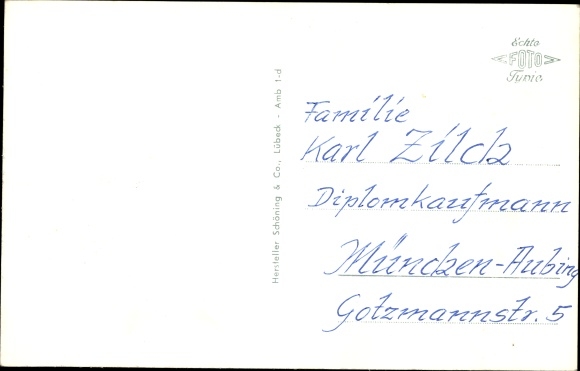 Echte
FOTO
Hersteller Schöning & Co., Lübeck - Amb 1-d
Familie
Karl Zilch
Diplomkaufmann
München-Aubing
Gotzmannstr. 5